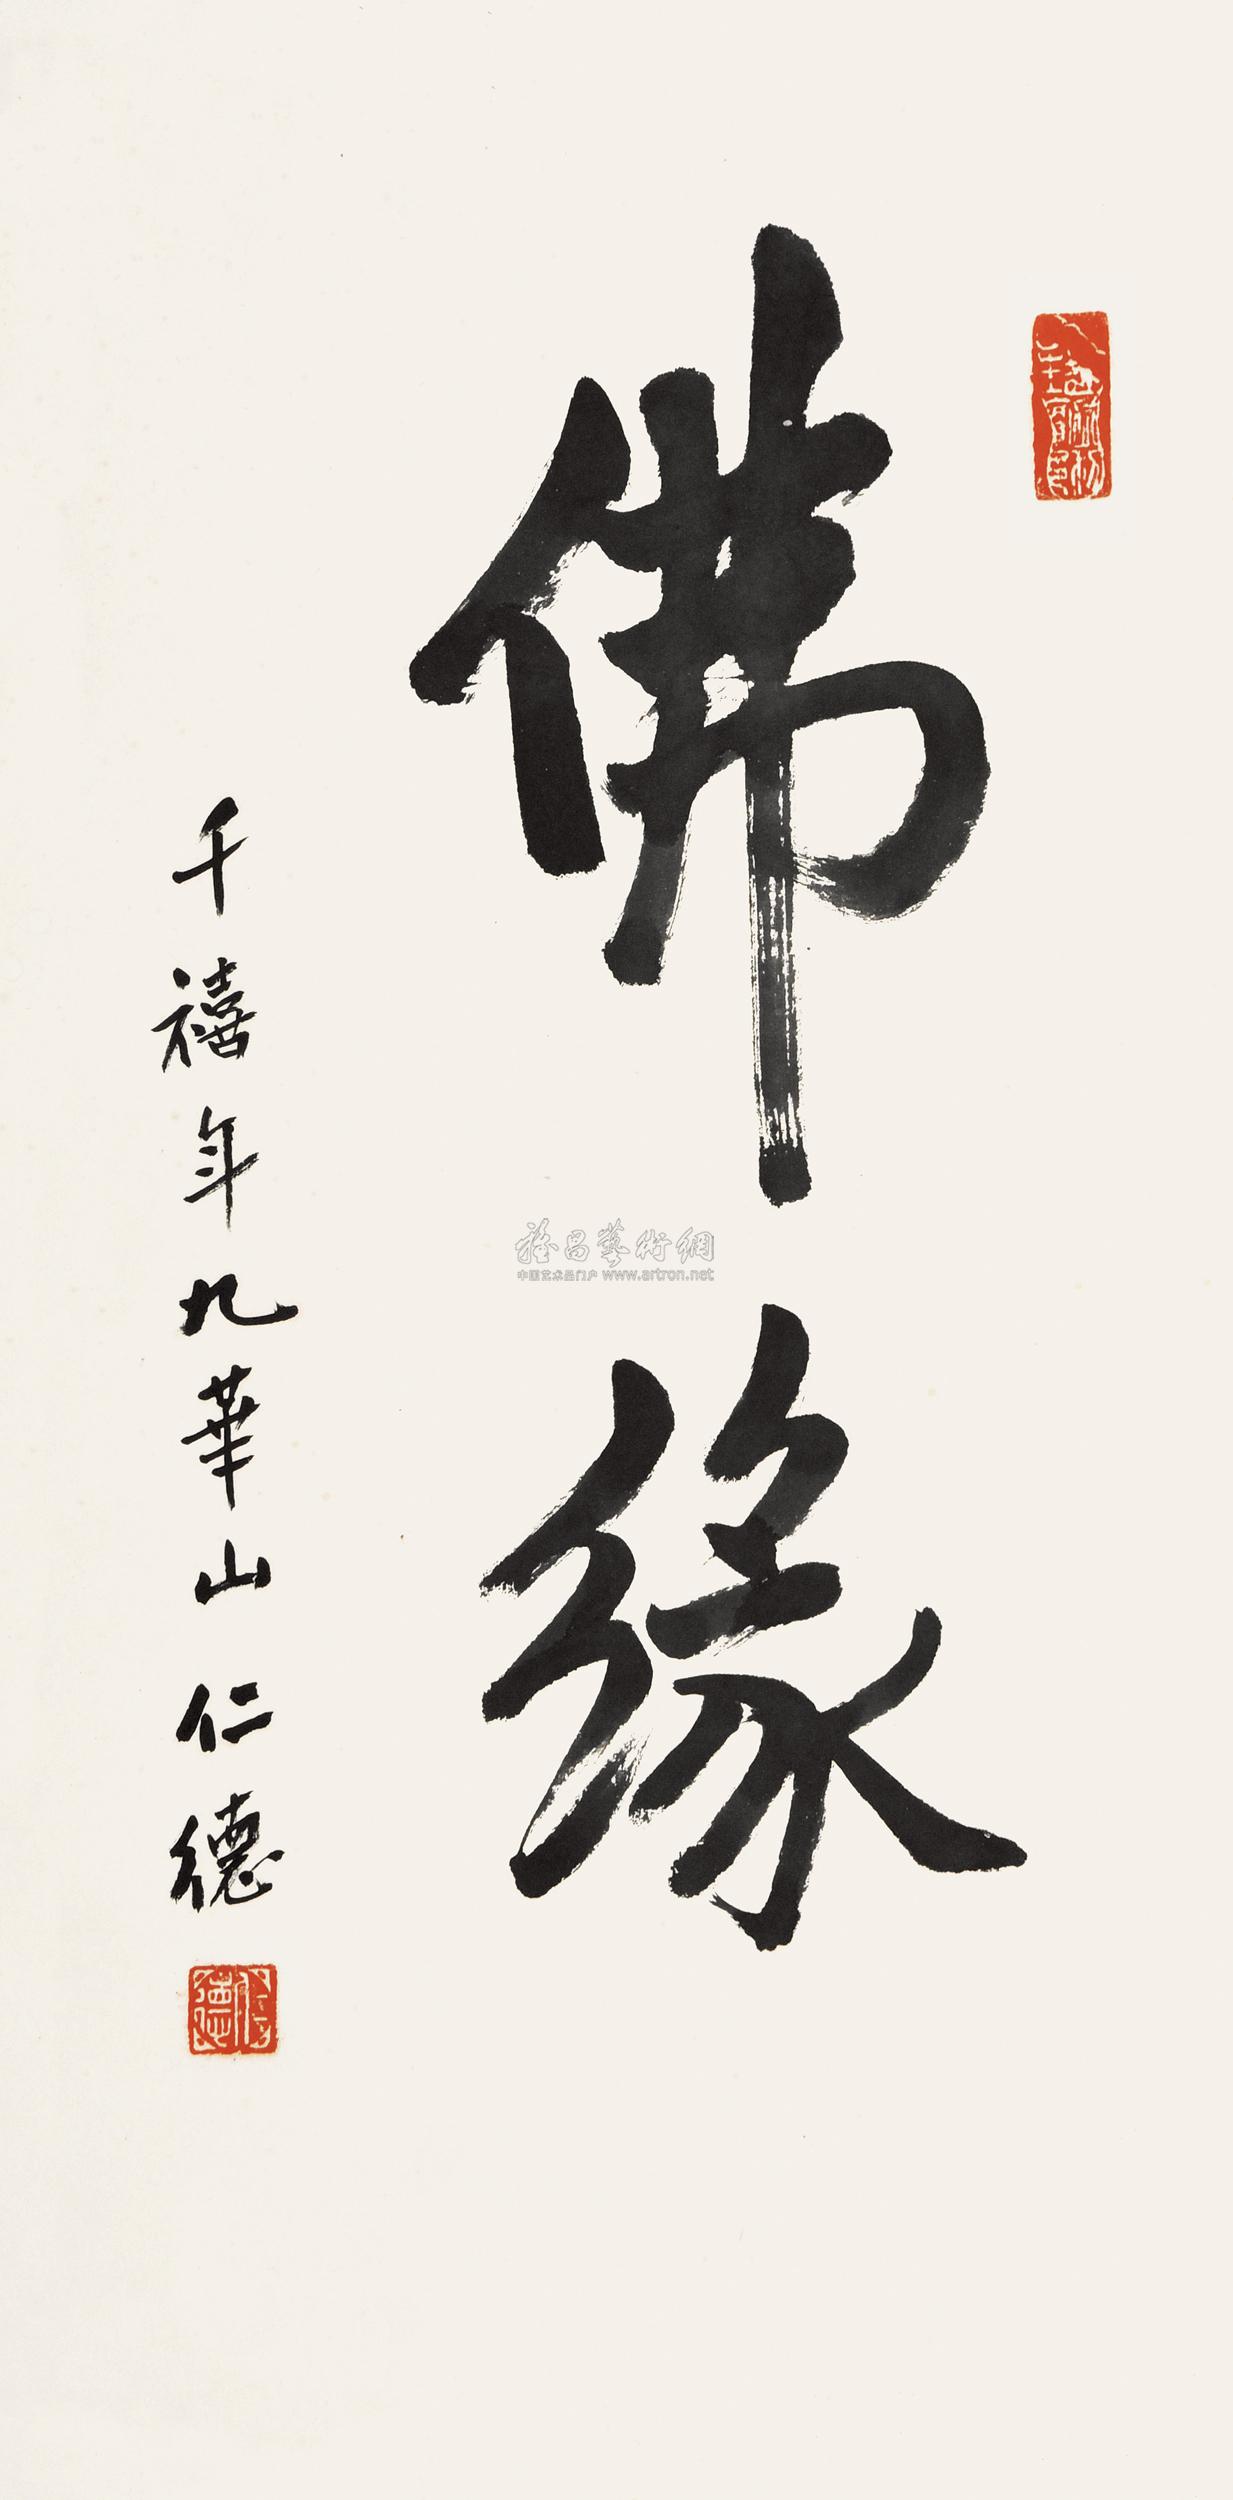 佛緣
千禧年九華山仁德
仁德
雅昌藝術網
中国艺术品门户 www.artron.net